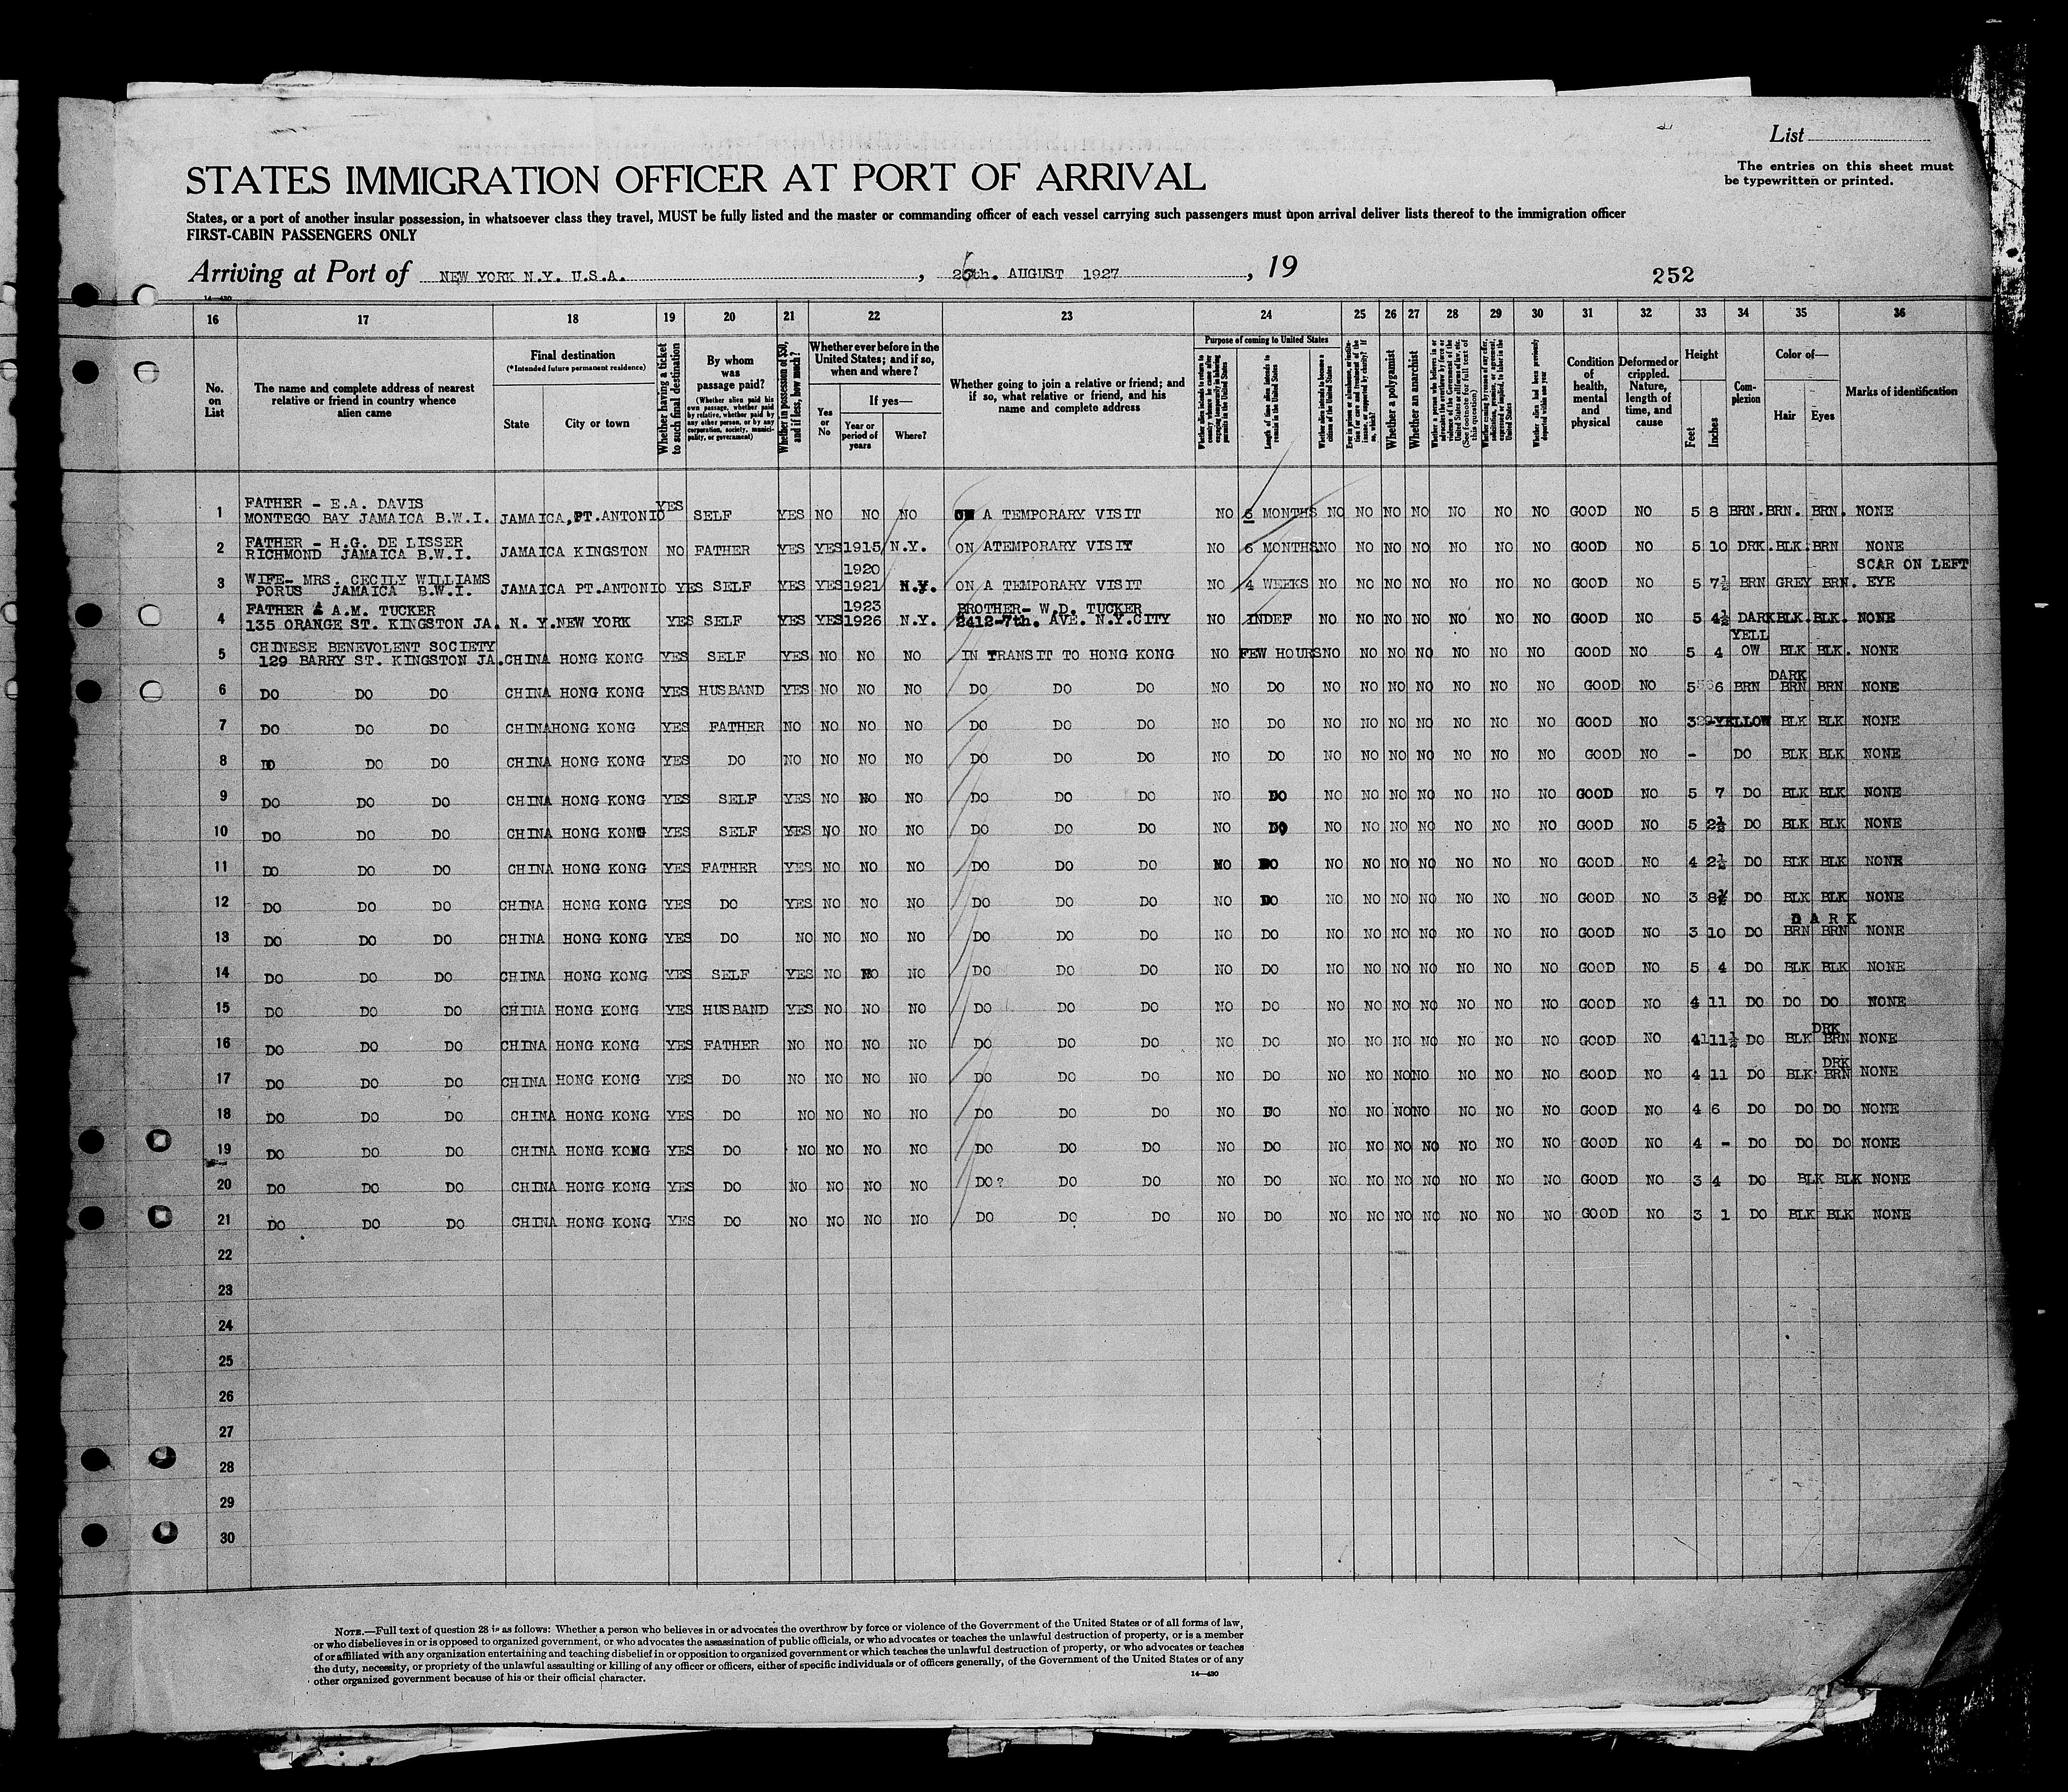 List
The entries on this sheet must
be typewritten or printed.
STATES IMMIGRATION OFFICER AT PORT OF ARRIVAL
States, or a port of another insular possession, in whatsoever class they travel, MUST be fully listed and the master or commanding officer of each vessel carrying such passengers must upon arrival deliver lists thereof to the immigration officer
FIRST-CABIN PASSENGERS ONLY
Arriving at Port of NEW YORK N.Y. U.S.A. , 26th. AUGUST 1927 , 19
252
14—430
16 17 18 19 20 21 22 23 24 25 26 27 28 29 30 31 32 33 34 35 36
No. on List
The name and complete address of nearest relative or friend in country whence alien came
Final destination
(*Intended future permanent residence)
State
City or town
Whether having a ticket to such final destination
By whom was passage paid?
(Whether alien paid his own passage, whether paid by relative, whether paid by any other person, or by any corporation, society, municipality, or government)
Whether in possession of $50, and if less, how much?
Whether ever before in the United States; and if so, when and where?
Yes or No
If yes—
Year or period of years
Where?
Whether going to join a relative or friend; and if so, what relative or friend, and his name and complete address
Purpose of coming to United States
Length of time alien intends to remain in the United States
Whether alien intends to become a citizen of the United States
Whether a polygamist
Whether an anarchist
Whether alien had been previously deported within one year
Condition of health, mental and physical
Deformed or crippled. Nature, length of time, and cause
Height
Feet
Inches
Complexion
Color of—
Hair
Eyes
Marks of identification
1 FATHER - E.A. DAVIS
MONTEGO BAY JAMAICA B.W.I. JAMAICA, PT.ANTONIO YES SELF YES NO NO NO ON A TEMPORARY VISIT NO 6 MONTHS NO NO NO NO NO NO NO GOOD NO 5 8 BRN. BRN. BRN. NONE
2 FATHER - H.G. DE LISSER
RICHMOND JAMAICA B.W.I. JAMAICA KINGSTON NO FATHER YES YES 1915 N.Y. ON ATEMPORARY VISIT NO 6 MONTHS NO NO NO NO NO NO NO GOOD NO 5 10 DRK. BLK. BRN NONE
3 WIFE- MRS. CECILY WILLIAMS 1920 SCAR ON LEFT
PORUS JAMAICA B.W.I. JAMAICA PT.ANTONIO YES SELF YES YES 1921 N.Y. ON A TEMPORARY VISIT NO 4 WEEKS NO NO NO NO NO NO NO GOOD NO 5 7½ BRN GREY BRN. EYE
4 FATHER A.M. TUCKER 1923 BROTHER- W.D. TUCKER
135 ORANGE ST. KINGSTON JA. N. Y. NEW YORK YES SELF YES YES 1926 N.Y. 2412-7th. AVE. N.Y.CITY NO INDEF NO NO NO NO NO NO NO GOOD NO 5 4½ DARK BLK. BLK. NONE
5 CHINESE BENEVOLENT SOCIETY YELL
129 BARRY ST. KINGSTON JA. CHINA HONG KONG YES SELF YES NO NO NO IN TRANSIT TO HONG KONG NO FEW HOURS NO NO NO NO NO NO NO GOOD NO 5 4 OW BLK BLK. NONE
DARK
6 DO DO DO CHINA HONG KONG YES HUSBAND YES NO NO NO DO DO DO NO DO NO NO NO NO NO NO NO GOOD NO 5 6 BRN BRN BRN NONE
7 DO DO DO CHINA HONG KONG YES FATHER NO NO NO NO DO DO DO NO DO NO NO NO NO NO NO NO GOOD NO 3 YELLOW BLK BLK NONE
8 DO DO DO CHINA HONG KONG YES DO NO NO NO NO DO DO DO NO DO NO NO NO NO NO NO NO GOOD NO - DO BLK BLK NONE
9 DO DO DO CHINA HONG KONG YES SELF YES NO NO NO DO DO DO NO DO NO NO NO NO NO NO NO GOOD NO 5 7 DO BLK BLK NONE
10 DO DO DO CHINA HONG KONG YES SELF YES NO NO NO DO DO DO NO DO NO NO NO NO NO NO NO GOOD NO 5 2½ DO BLK BLK NONE
11 DO DO DO CHINA HONG KONG YES FATHER YES NO NO NO DO DO DO NO DO NO NO NO NO NO NO NO GOOD NO 4 2½ DO BLK BLK NONE
12 DO DO DO CHINA HONG KONG YES DO YES NO NO NO DO DO DO NO DO NO NO NO NO NO NO NO GOOD NO 3 8½ DO BLK BLK NONE
DARK
13 DO DO DO CHINA HONG KONG YES DO NO NO NO NO DO DO DO NO DO NO NO NO NO NO NO NO GOOD NO 3 10 DO BRN BRN NONE
14 DO DO DO CHINA HONG KONG YES SELF YES NO NO NO DO DO DO NO DO NO NO NO NO NO NO NO GOOD NO 5 4 DO BLK BLK NONE
15 DO DO DO CHINA HONG KONG YES HUSBAND YES NO NO NO DO DO DO NO DO NO NO NO NO NO NO NO GOOD NO 4 11 DO DO DO NONE
DRK
16 DO DO DO CHINA HONG KONG YES FATHER NO NO NO NO DO DO DO NO DO NO NO NO NO NO NO NO GOOD NO 4 11½ DO BLK BRN NONE
DRK
17 DO DO DO CHINA HONG KONG YES DO NO NO NO NO DO DO DO NO DO NO NO NO NO NO NO NO GOOD NO 4 11 DO BLK BRN NONE
18 DO DO DO CHINA HONG KONG YES DO NO NO NO NO DO DO DO NO DO NO NO NO NO NO NO NO GOOD NO 4 6 DO DO DO NONE
19 DO DO DO CHINA HONG KONG YES DO NO NO NO NO DO DO DO NO DO NO NO NO NO NO NO NO GOOD NO 4 - DO DO DO NONE
20 DO DO DO CHINA HONG KONG YES DO NO NO NO NO DO? DO DO NO DO NO NO NO NO NO NO NO GOOD NO 3 4 DO BLK BLK NONE
21 DO DO DO CHINA HONG KONG YES DO NO NO NO NO DO DO DO NO DO NO NO NO NO NO NO NO GOOD NO 3 1 DO BLK BLK NONE
22
23
24
25
26
27
28
29
30
NOTE.—Full text of question 28 is as follows: Whether a person who believes in or advocates the overthrow by force or violence of the Government of the United States or of all forms of law,
or who disbelieves in or is opposed to organized government, or who advocates the assassination of public officials, or who advocates or teaches the unlawful destruction of property, or is a member
of or affiliated with any organization entertaining and teaching disbelief in or opposition to organized government or which teaches the unlawful destruction of property, or who advocates or teaches
the duty, necessity, or propriety of the unlawful assaulting or killing of any officer or officers, either of specific individuals or of officers generally, of the Government of the United States or of any
other organized government because of his or their official character.
14—430